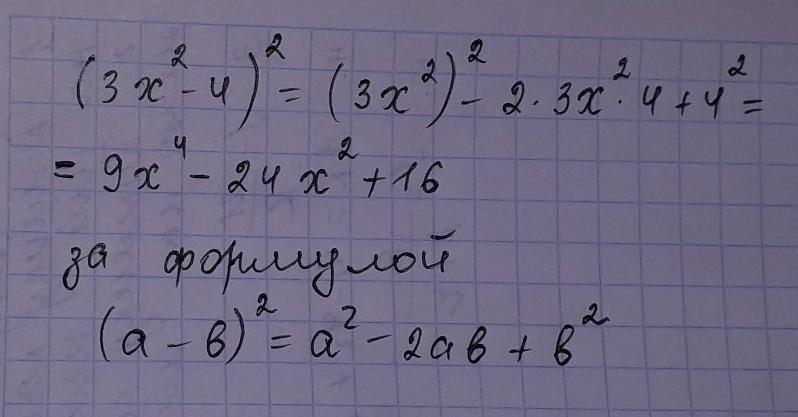 (3x² - 4)² = (3x²)² - 2·3x²·4 + 4² =
= 9x⁴ - 24x² + 16
за формулой
(а - в)² = а² - 2ав + в²